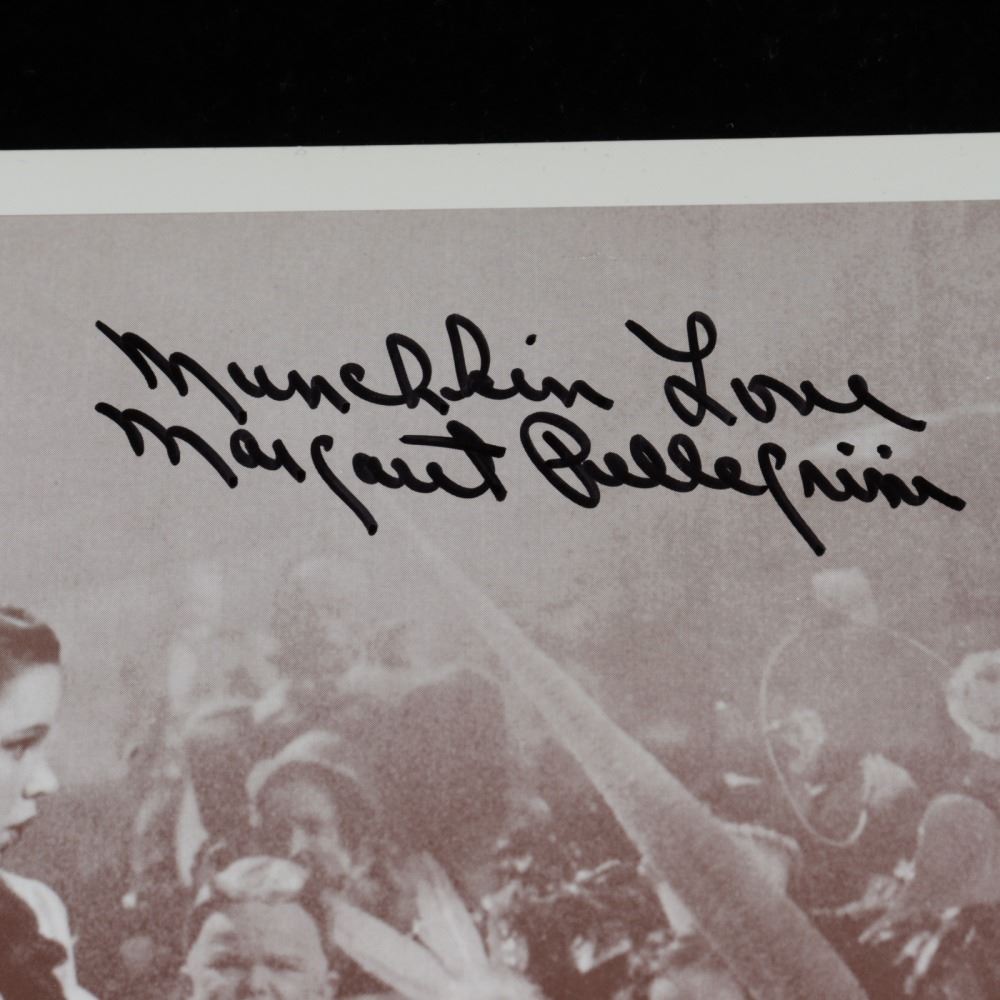 Munchkin Love
Margaret Pellegrini